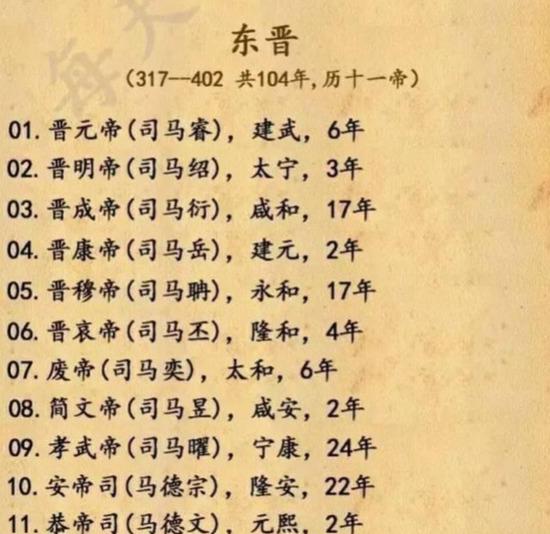 东晋
（317--402 共104年,历十一帝）
01.晋元帝(司马睿)，建武，6年
02.晋明帝(司马绍)，太宁，3年
03.晋成帝(司马衍)，咸和，17年
04.晋康帝(司马岳)，建元，2年
05.晋穆帝(司马聃)，永和，17年
06.晋哀帝(司马丕)，隆和，4年
07.废帝(司马奕)，太和，6年
08.简文帝(司马昱)，咸安，2年
09.孝武帝(司马曜)，宁康，24年
10.安帝司(马德宗)，隆安，22年
11.恭帝司(马德文)，元熙，2年